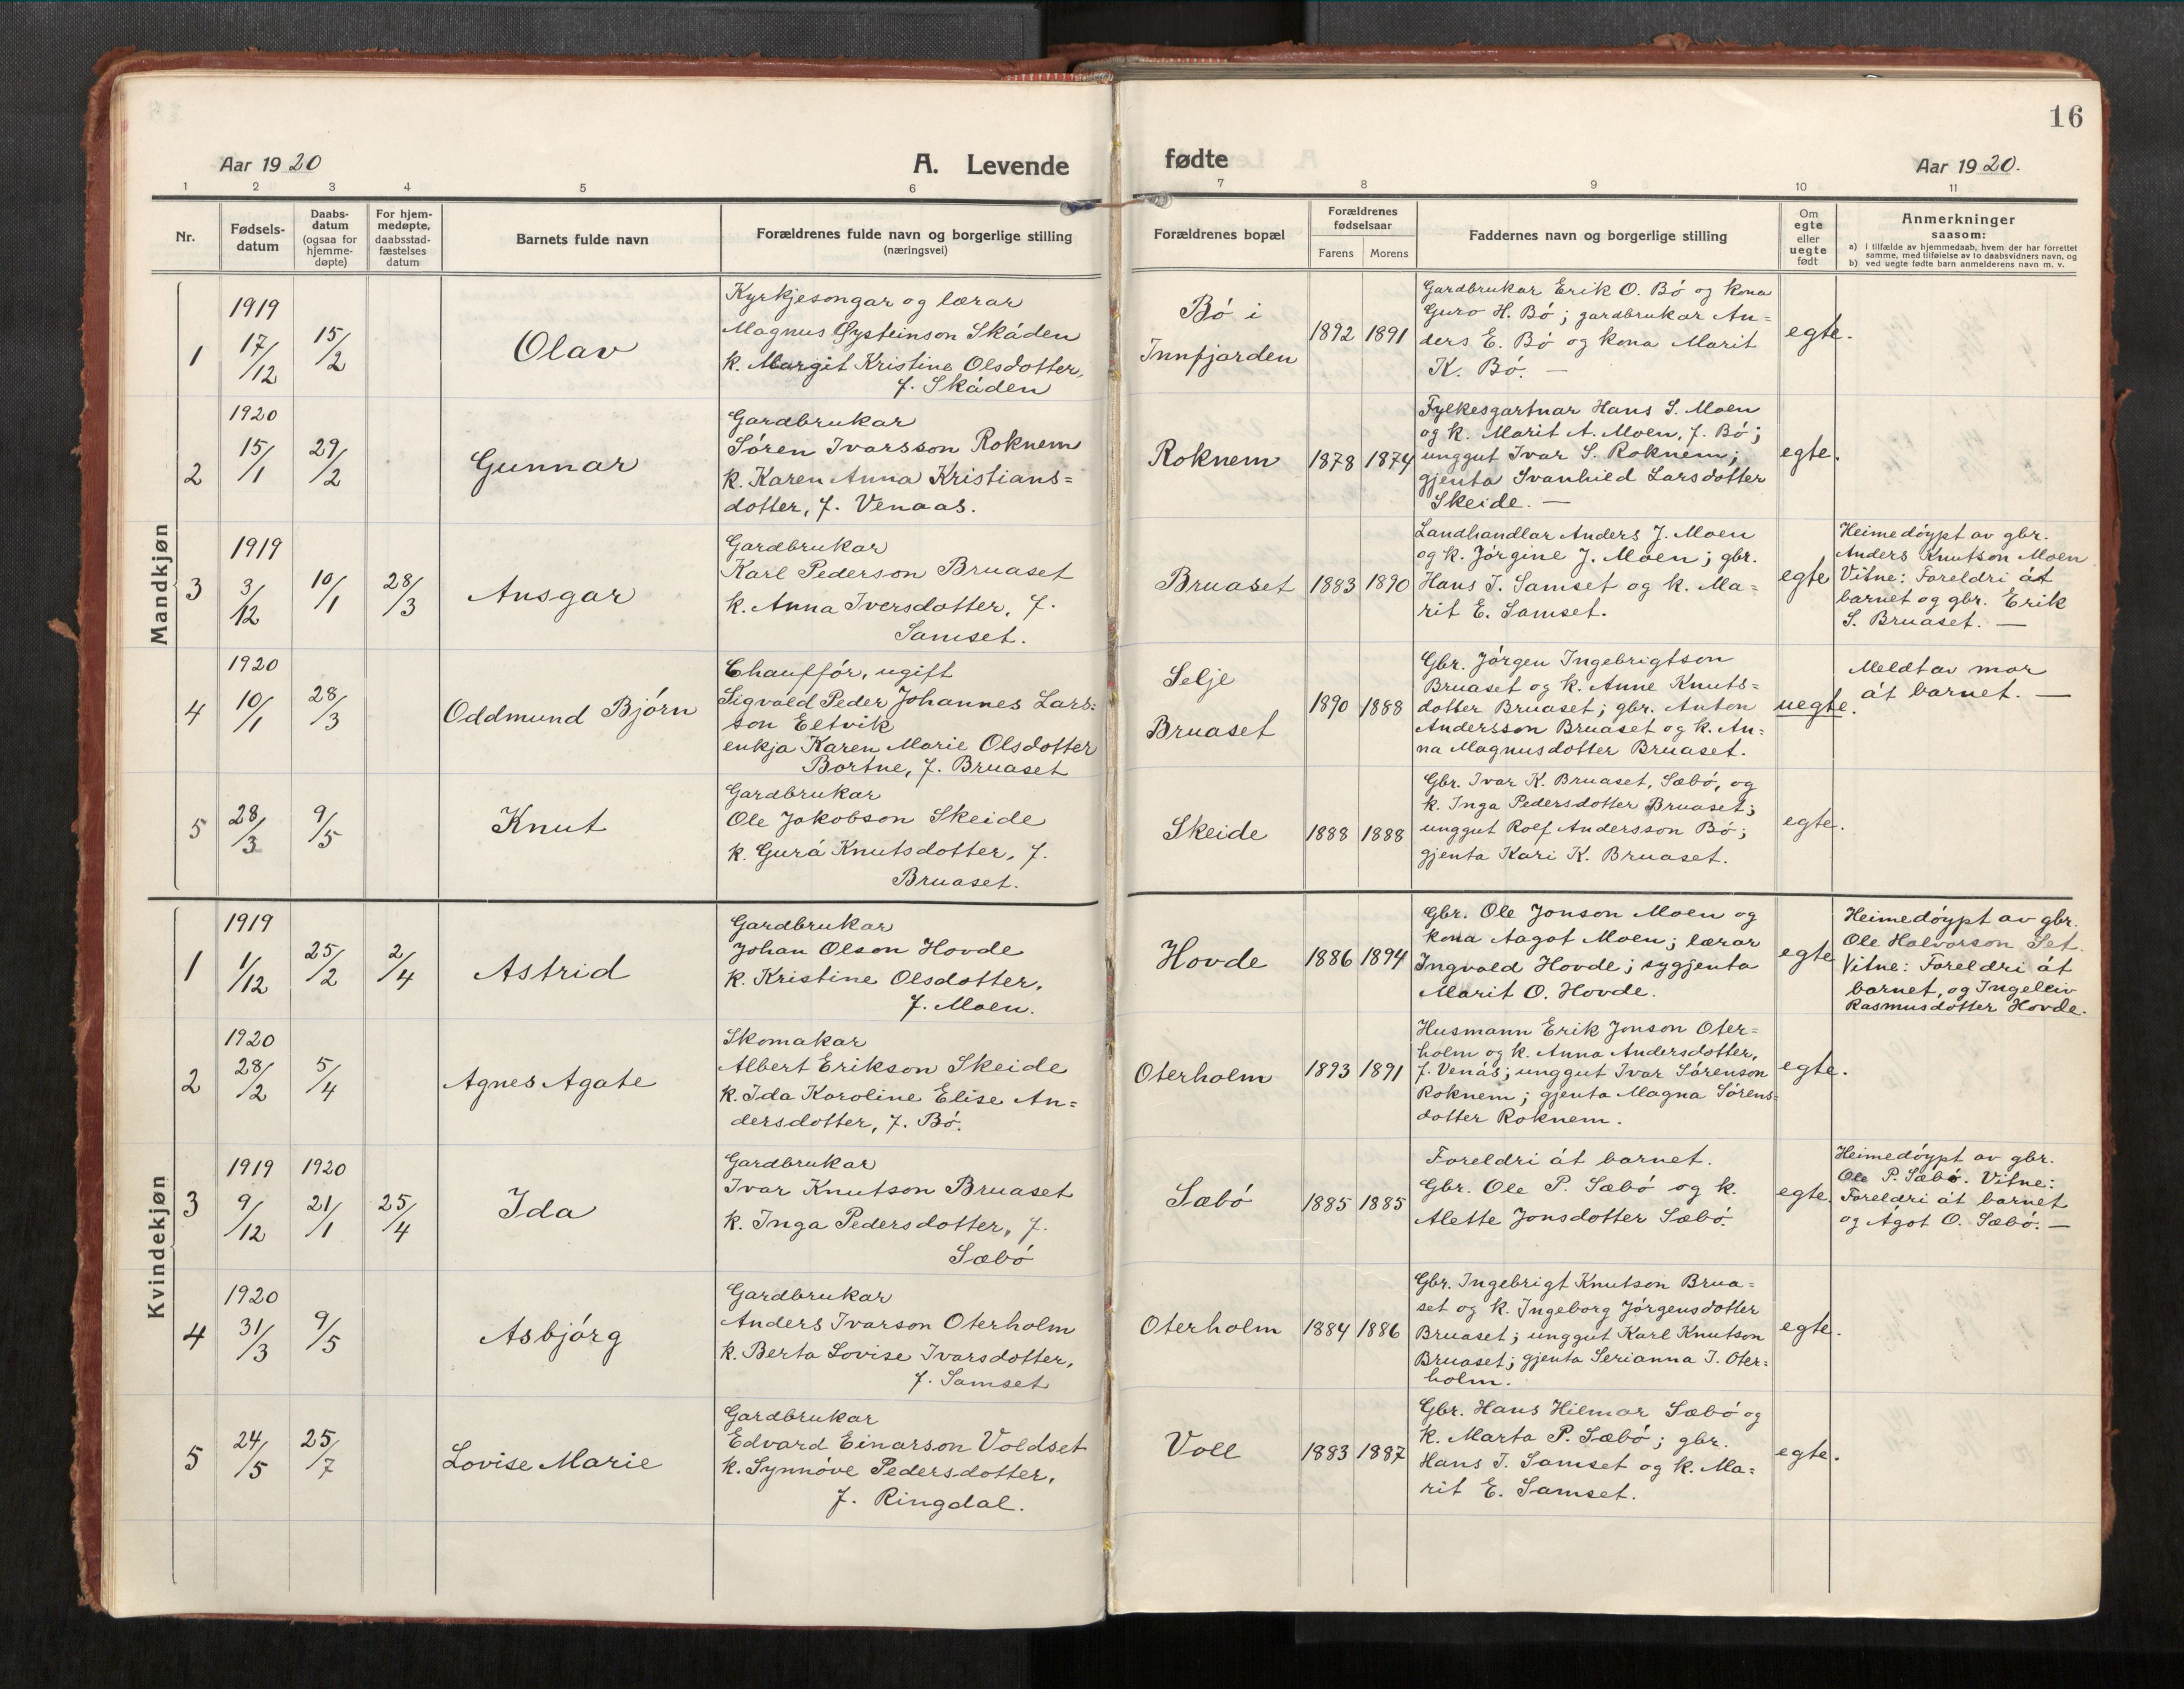 16
Aar 1920
A. Levende
fødte
Aar 1920.
1 2 3 4 5 6 7 8 9 10 11
Nr.
Fødsels-
datum
Daabs-
datum
(ogsaa for
hjemme-
døpte)
For hjem-
medøpte,
daabsstad-
fæstelses
datum
Barnets fulde navn
Forældrenes fulde navn og borgerlige stilling
(næringsvei)
Forældrenes bopæl
Forældrenes
fødselsaar
Farens Morens
Faddernes navn og borgerlige stilling
Om
egte
eller
uegte
født
Anmerkninger
saasom:
a) i tilfælde av hjemmedaab, hvem der har forrettet
samme, med tilføielse av to daabsvidners navn, og
b) ved uegte fødte barn anmelderens navn m. v.
Mandkjøn
1
1919
17/12
15/2
Olav
Kyrkjesongar og lærar
Magnus Øysteinson Skáden
k. Margit Kristine Olsdotter,
f. Skáden
Bó i
Innfjorden
1892 1891
Gardbrukar Erik O. Bó og kona
Guro H. Bó; gardbrukar An=
ders E. Bó og kona Marit
K. Bó. —
egte.
2
1920
15/1
29/2
Gunnar
Gardbrukar
Sóren Ivarsson Roknem
k. Karen Anna Kristians=
dotter, f. Venaas.
Roknem
1878 1874
Fylkesgartnar Hans S. Moen
og k. Marit A. Moen, f. Bó;
unggut Ivar S. Roknem;
gjenta Svanhild Larsdotter
Skeide. —
egte.
3
1919
3/12
10/1
28/3
Ansgar
Gardbrukar
Karl Pederson Bruaset
k. Anna Iversdotter, f.
Samset.
Bruaset
1883 1890
Landhandlar Anders J. Moen
og k. Jórgine J. Moen; gbr.
Hans I. Samset og k. Ma=
rit E. Samset.
egte
Heimedóypt av gbr.
Anders Knutson Moen
Vitne: Foreldri át
barnet og gbr. Erik
S. Bruaset. —
4
1920
10/1
28/3
Oddmund Bjórn
Chauffór, ugift
Sigvald Peder Johannes Lars=
son Eltvik
enkja Karen Marie Olsdotter
Bortne, f. Bruaset
Selje
Bruaset
1890 1888
Gbr. Jórgen Ingebrigtson
Bruaset og k. Anne Knuts=
dotter Bruaset; gbr. Anton
Andersson Bruaset og k. An=
na Magnusdotter Bruaset.
uegte.
Meldt av mor
át barnet. —
5
28/3
9/5
Knut
Gardbrukar
Ole Jakobson Skeide
k. Gurá Knutsdotter, f.
Bruaset.
Skeide
1888 1888
Gbr. Ivar K. Bruaset, Sæbó, og
k. Inga Pedersdotter Bruaset;
unggut Rolf Andersson Bó;
gjenta Kari K. Bruaset.
egte.
Kvindekjøn
1
1919
1/12
25/2
2/4
Astrid
Gardbrukar
Johan Olson Hovde
k. Kristine Olsdotter,
f. Moen.
Hovde
1886 1894
Gbr. Ole Jonson Moen og
kona Aagot Moen; lærar
Ingvald Hovde; sygjenta
Marit O. Hovde.
egte
Heimedóypt av gbr.
Ole Halvorson Set.
Vitne: Foreldri át
barnet, og Ingeleiv
Rasmusdotter Hovde.
2
1920
28/2
5/4
Agnes Agate
Skomakar
Albert Erikson Skeide
k. Ida Karoline Elise An=
dersdotter, f. Bó.
Oterholm
1893 1891
Husmann Erik Jonson Oter=
holm og k. Anna Andersdotter,
f. Venás; unggut Ivar Sórenson
Roknem; gjenta Magna Sórens=
dotter Roknem.
egte.
3
1919
9/12
1920
21/1
25/4
Ida
Gardbrukar
Ivar Knutson Bruaset
k. Inga Pedersdotter, f.
Sæbó
Sæbó
1885 1885
Foreldri át barnet.
Gbr. Ole P. Sæbó og k.
Alette Jonsdotter Sæbó.
egte.
Heimedóypt av gbr.
Ole P. Sæbó. Vitne:
Foreldri át barnet
og Ágot O. Sæbó. —
4
1920
31/3
9/5
Asbjórg
Gardbrukar
Anders Ivarson Oterholm
k. Berta Lovise Ivarsdotter,
f. Samset
Oterholm
1884 1886
Gbr. Ingebrigt Knutson Brua=
set og k. Ingeborg Jórgensdotter
Bruaset; unggut Karl Knutson
Bruaset; gjenta Serianna I. Oter=
holm.
egte.
5
24/5
25/7
Lovise Marie
Gardbrukar
Edvard Einarson Voldset
k. Synnóve Pedersdotter,
f. Ringdal.
Voll
1883 1887
Gbr. Hans Hilmar Sæbó og
k. Marta P. Sæbó; gbr.
Hans I. Samset og k. Ma=
rit E. Samset.
egte.